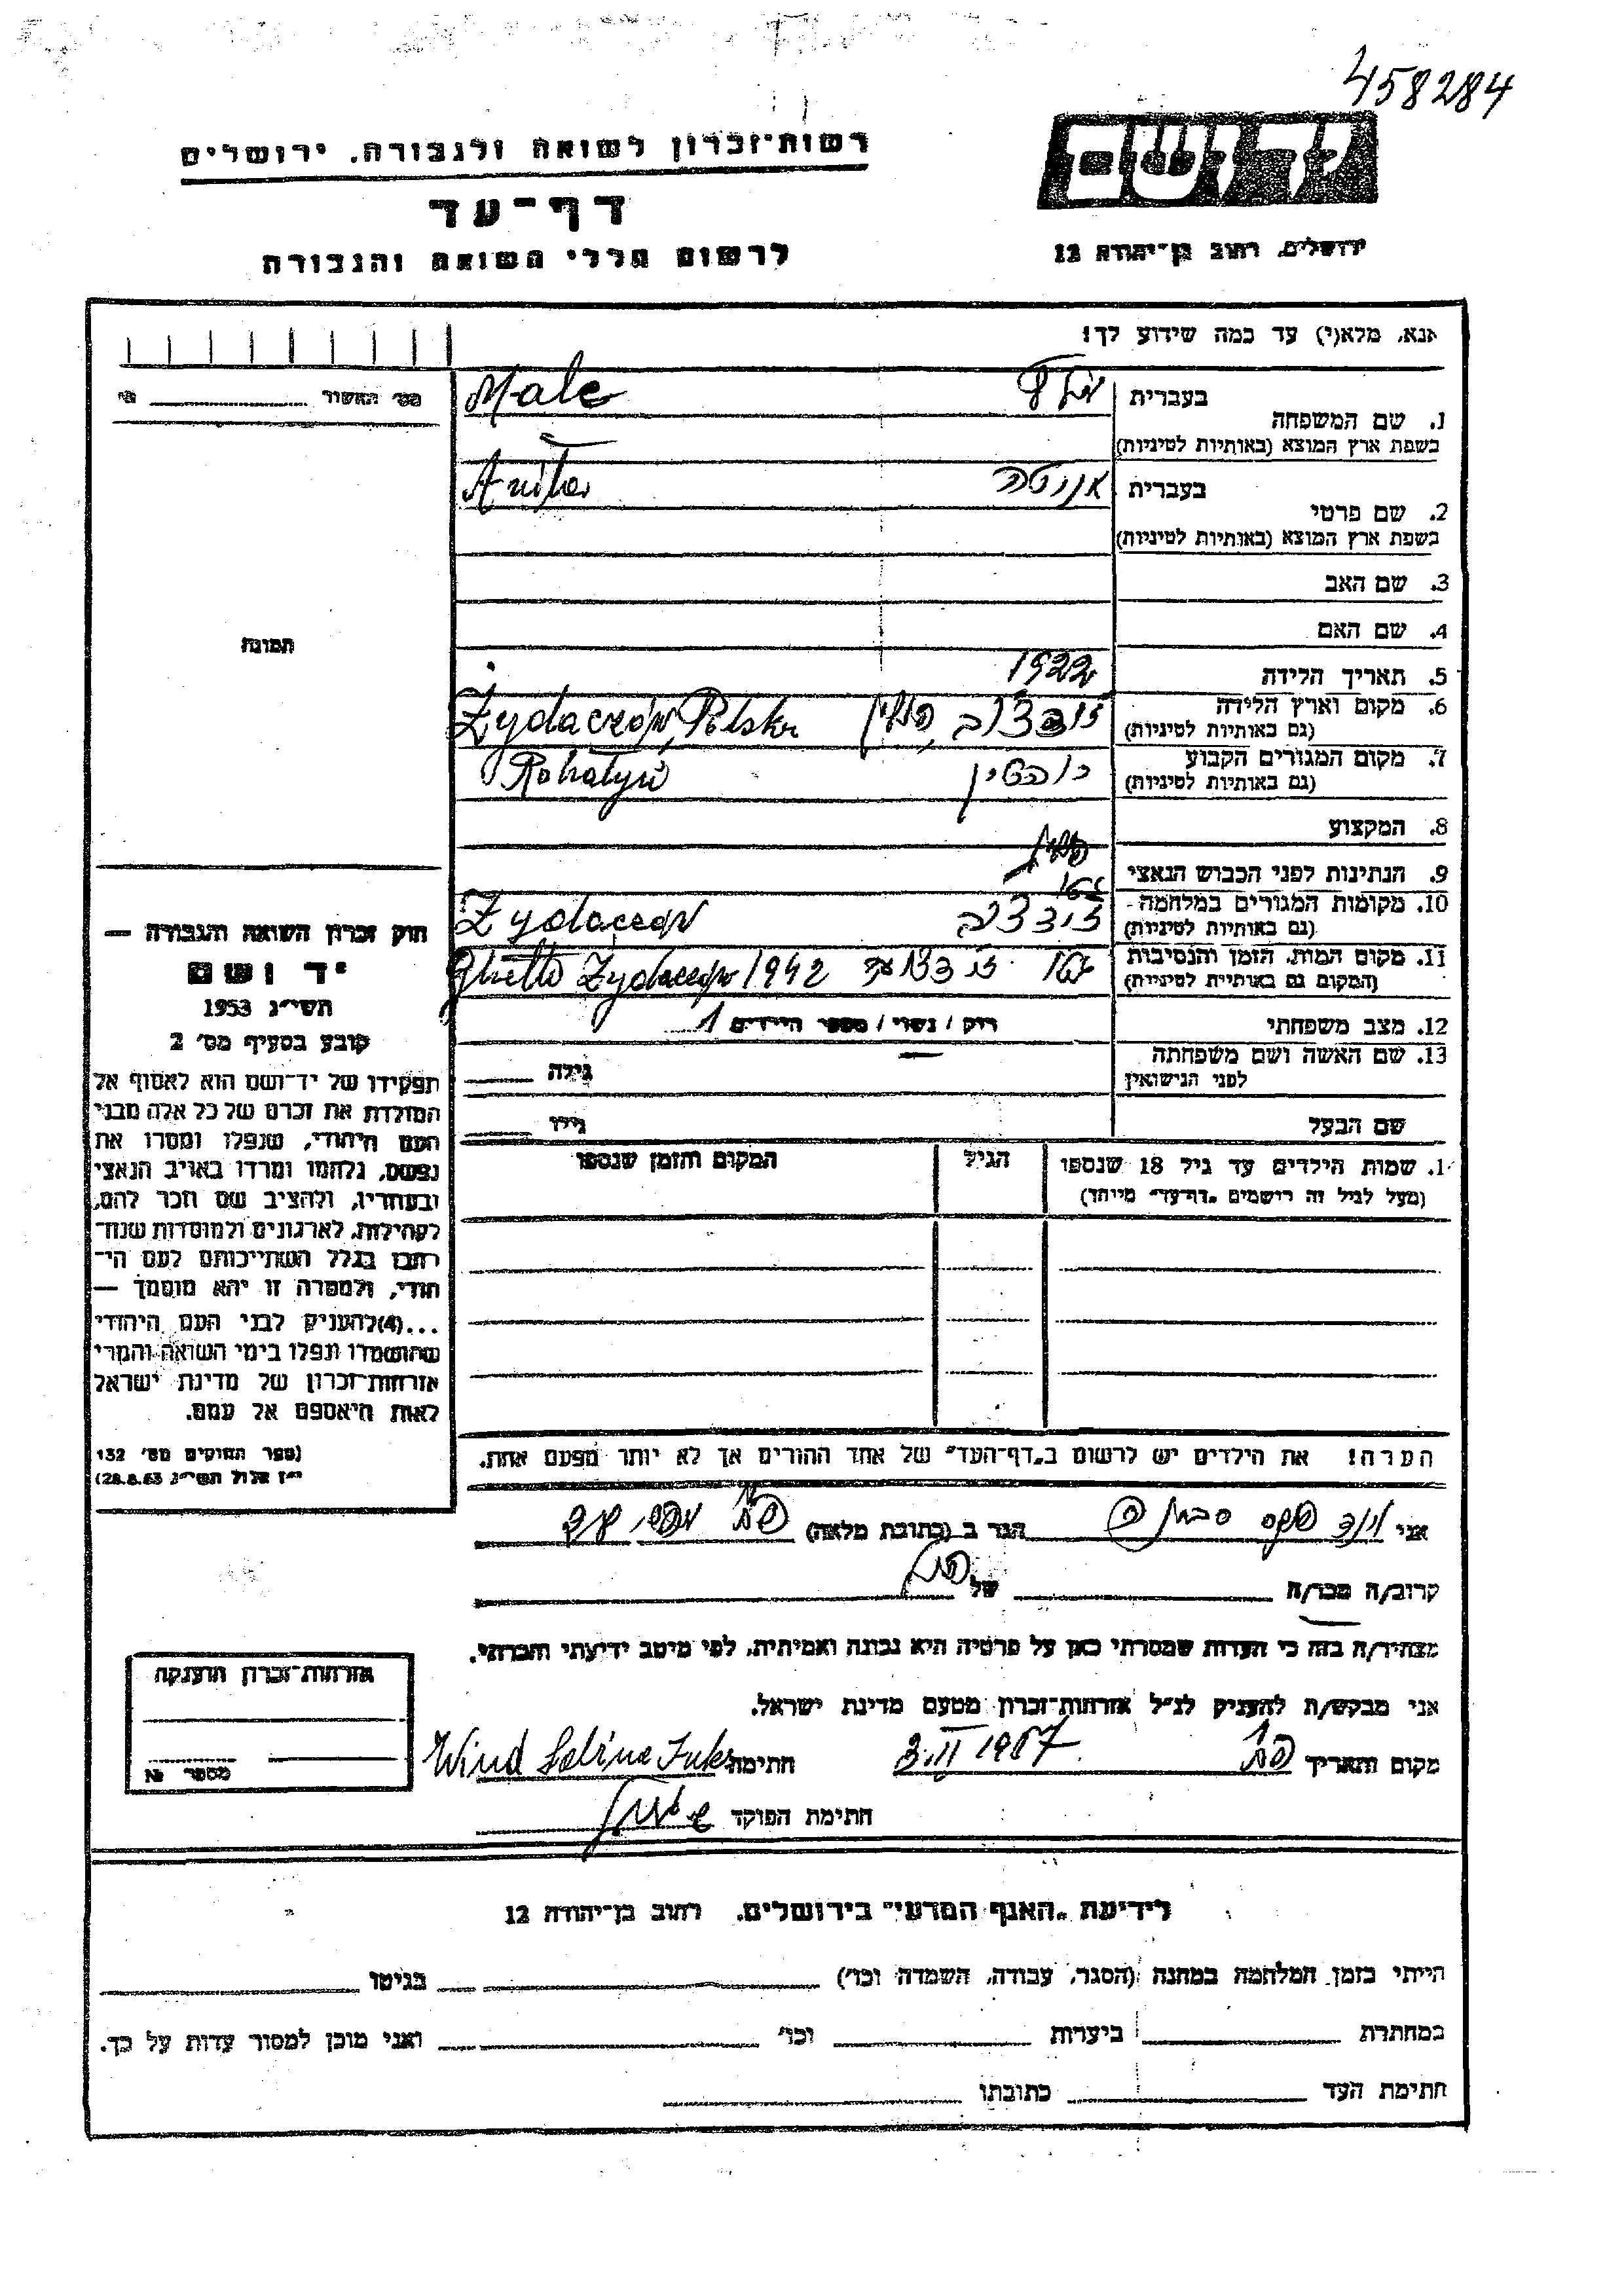 458284
יד ושם
רשות־זכרון לשואה ולגבורה. ירושלים
דף־עד
לרשום חללי השואה והגבורה
ירושלים. רחוב בן־יהודה 12
אנא, מלא(י) עד כמה שידוע לך!
מס׳ האשור
1. שם המשפחה
בעברית
Male
בשפת ארץ המוצא (באותיות לטיניות)
2. שם פרטי
בעברית אניטה
Anita
בשפת ארץ המוצא (באותיות לטיניות)
3. שם האב
4. שם האם
תמונה
5. תאריך הלידה 1922
6. מקום וארץ הלידה
(גם באותיות לטיניות)
פולין Żydaczów, Polska
7. מקום המגורים הקבוע
(גם באותיות לטיניות)
רוהטין Rohatyń
8. המקצוע
9. הנתינות לפני הכבוש הנאצי
10. מקומות המגורים במלחמה
(גם באותיות לטיניות)
Żydaczów
11. מקום המות. הזמן והנסיבות
(המקום גם באותיות לטיניות)
Ghetto Żydaczów 1942
12. מצב משפחתי
רוק / נשוי / מספר הילדים 1
13. שם האשה ושם משפחתה
לפני הנישואין
גילה
שם הבעל
גילו
1. שמות הילדים עד גיל 18 שנספו
(מעל לגיל זה רושמים „דף־עד״ מיוחד)
הגיל
המקום והזמן שנספו
חוק זכרון השואה והגבורה —
יד ושם
תשי״ג 1953
קובע בסעיף מס׳ 2
תפקידו של יד־ושם הוא לאסוף אל
המולדת את זכרם של כל אלה מבני
העם היהודי, שנפלו ומסרו את
נפשם, נלחמו ומרדו באויב הנאצי
ובעוזריו, ולהציב שם וזכר להם,
לקהילות, לארגונים ולמוסדות שנח־
רבו בגלל השתייכותם לעם הי־
הודי, ולמטרה זו יהא מוסמך —
...(4)להעניק לבני העם היהודי
שהושמדו ונפלו בימי השואה והמרי
אזרחות־זכרון של מדינת ישראל
לאות היאספם אל עמם.
(ספר החוקים מס׳ 132
י״ז אלול תשי״ג 28.8.53)
הערה! את הילדים יש לרשום ב„דף־העד״ של אחד ההורים אך לא יותר מפעם אחת.
אני
הגר ב (כתובת מלאה)
קרוב/ה מכר/ה
של
מצהיר/ה בזה כי העדות שמסרתי כאן על פרטיה היא נכונה ואמיתית, לפי מיטב ידיעתי והכרתי.
אני מבקש/ת להעניק לנ״ל אזרחות־זכרון מטעם מדינת ישראל.
מקום ותאריך 1957 חתימה Wind Sabina
חתימת הפוקד
אזרחות־זכרון הוענקה
מספר №
לידיעת „האגף המדעי״ בירושלים. רחוב בן־יהודה 12
הייתי בזמן המלחמה במחנה (הסגר, עבודה, השמדה וכו׳) בגיטו
במחתרת ביערות וכו׳ ואני מוכן למסור עדות על כך.
חתימת העד כתובתו